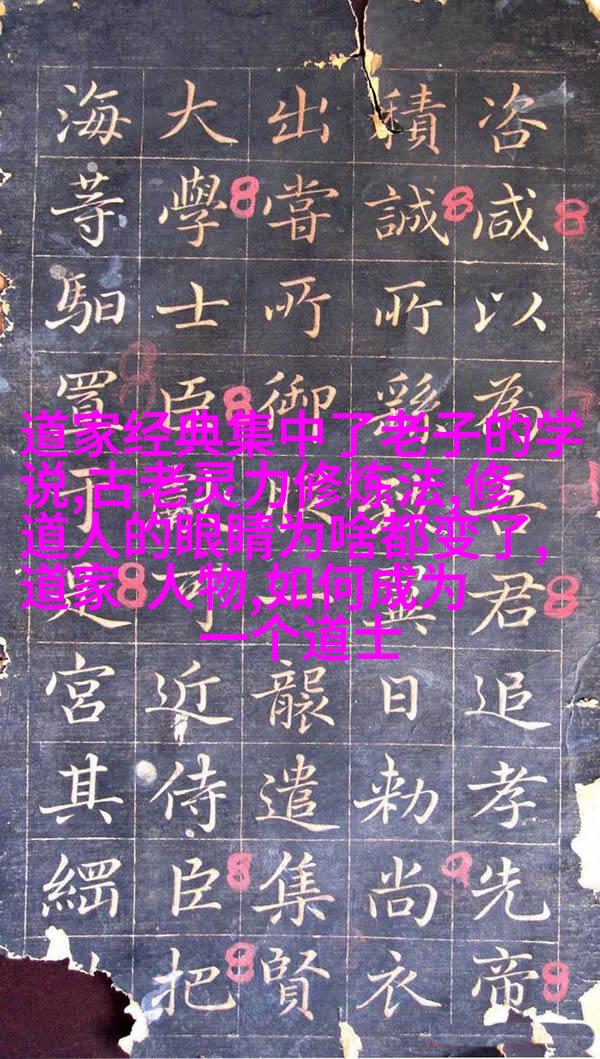 道家经典集中了老子的学
说,古老灵力修炼法,修
道人的眼睛为啥都变了,
道家 人物,如何成为
一个道士
咨咸以為君追孝先帝
積誠所無日勅尚衣
出嘗所御服一襲遣集賢
大學士臣可近侍臣把
海等馹置于是宮其